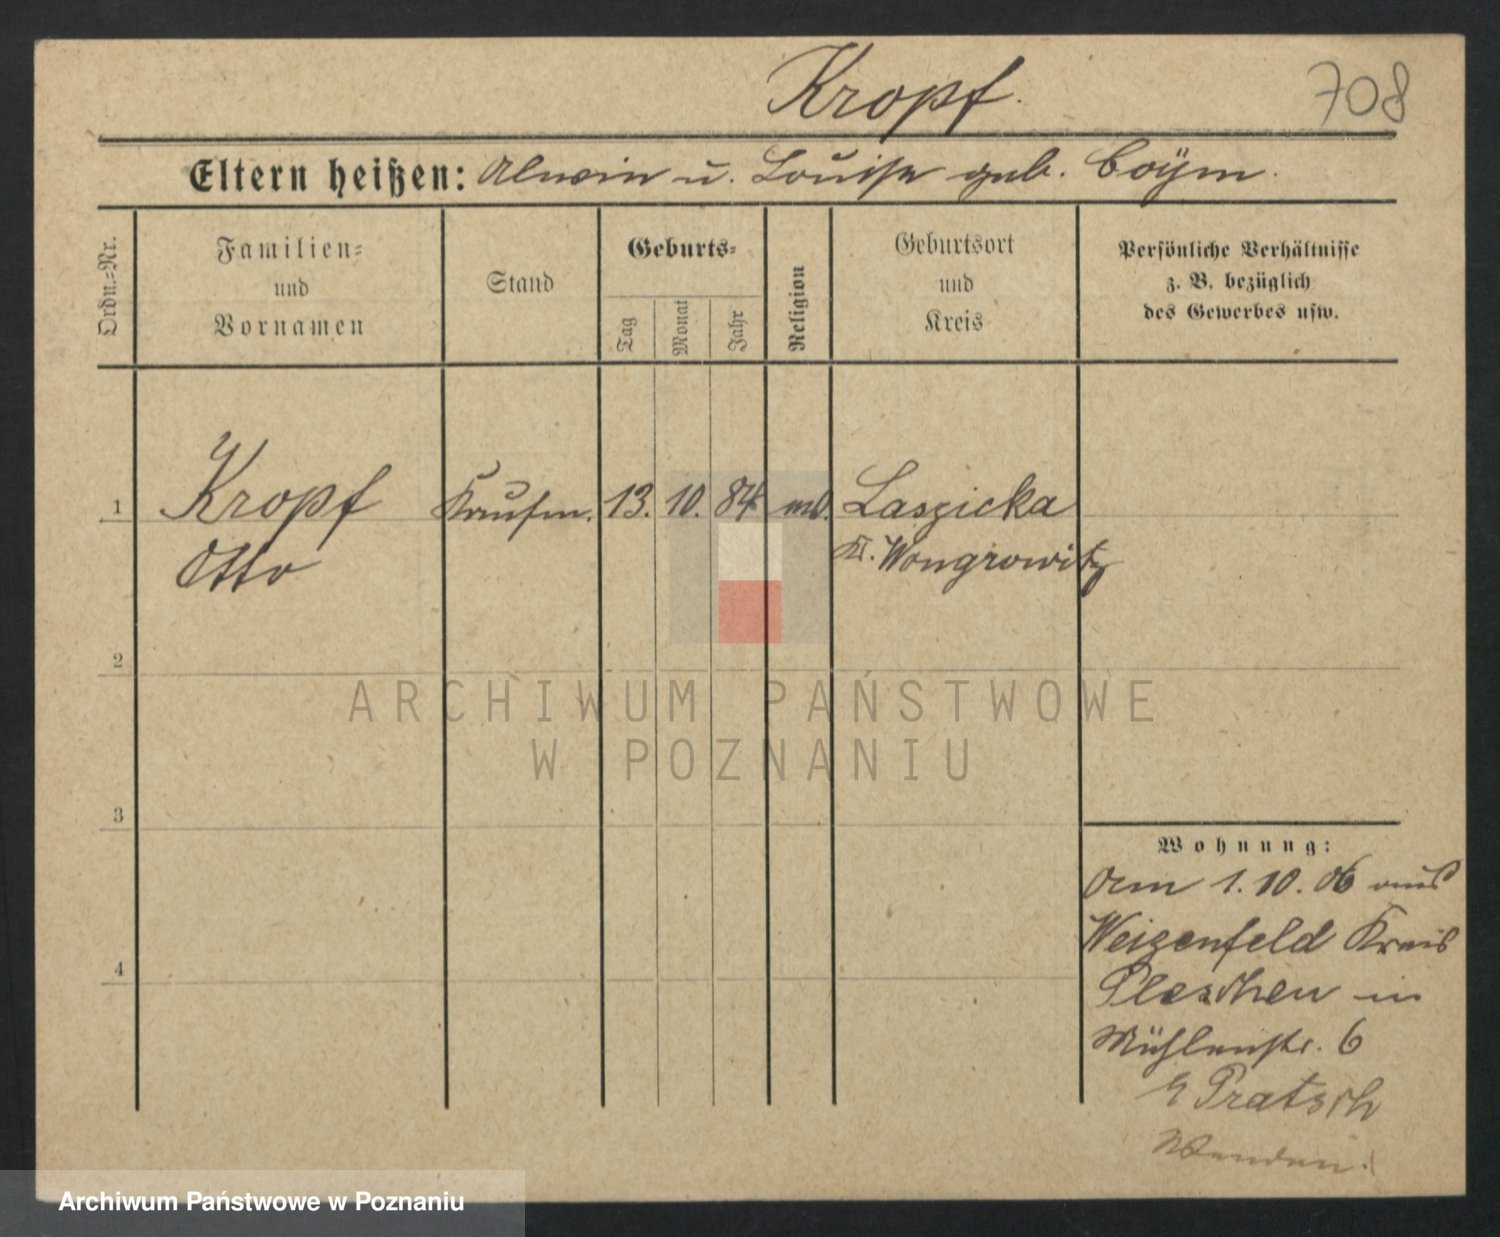 Kropf.
708
Eltern heißen: Alwin u. Louise geb. Boÿm.
Ordn.=Nr.
Familien=
und
Vornamen
Stand
Geburts=
Tag
Monat
Jahr
Religion
Geburtsort
und
Kreis
Persönliche Verhältnisse
z. B. bezüglich
des Gewerbes usw.
1
Kropf Kaufm. 13. 10. 84 Laszicka
Otto
K. Wongrowitz
2
3
4
Wohnung:
Am 1.10.06 aus
Weizenfeld Kreis
Pleschen in
Mühlenstr. 6
Pratsch
Wenden!
ARCHIWUM PAŃSTWOWE
W POZNANIU
Archiwum Państwowe w Poznaniu